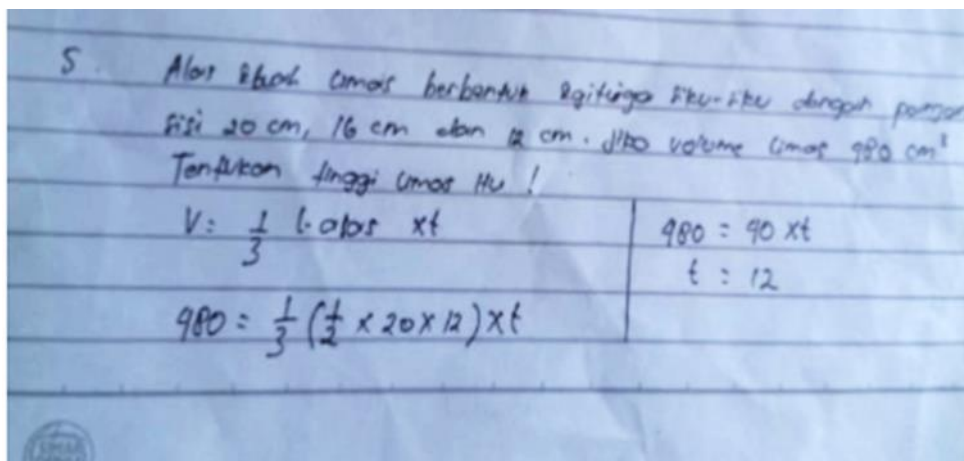 5. Alas sbuah limas berbentuk segitiga siku-siku dengan
sisi 20 cm, 16 cm dan 12 cm. Jika volume limas 480 cm³
Tentukan tinggi limas itu !
V = 1/3 l. alas x t
480 = 1/3 (1/2 x 20 x 12) x t
480 = 40 x t
t = 12